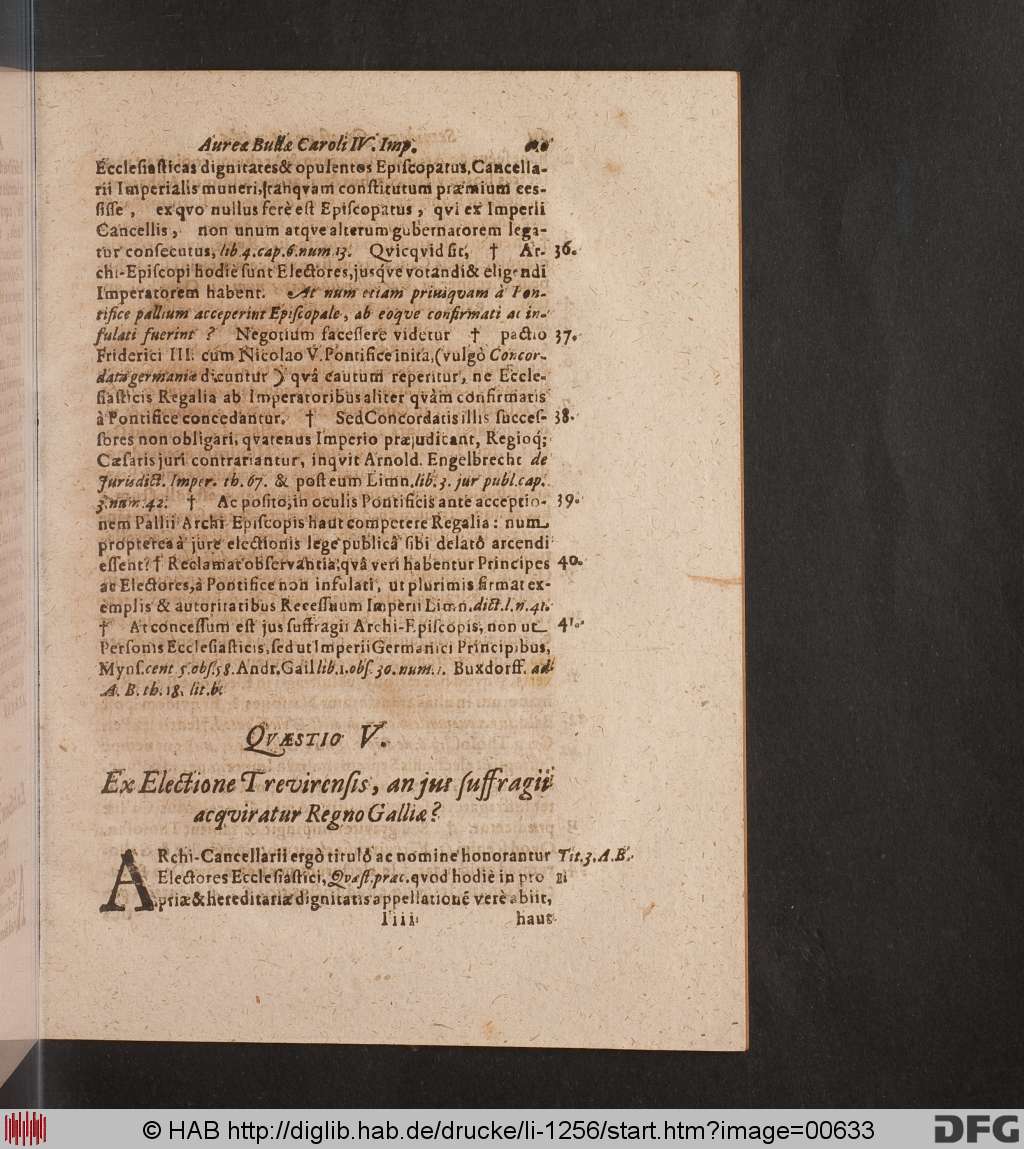 Aureæ Bullæ Caroli IV. Imp.
Ecclesiasticas dignitates & opulentos Episcopatus, Cancella-
rii Imperialis muneri, tanqvam constitutum præmium ces-
sisse, exqvo nullus ferè est Episcopatus, qvi ex Imperii
Cancellis, non unum atqve alterum gubernatorem lega-
tur consecutus, lib. 4. cap. 6. num. 13. Qvicqvid sit, † Ar- 36.
chi-Episcopi hodiè sunt Electores, jusq́ve votandi & eligendi
Imperatorem habent. At num etiam priusqvam à Pon-
tifice pallium acceperint Episcopale, ab eoqve confirmati ac in-
fulati fuerint? Negotium facessere videtur † pactio 37.
Friderici III. cum Nicolao V. Pontifice inita, (vulgò Concor-
data germaniæ dicuntur) qvâ cautum reperitur, ne Eccle-
siasticis Regalia ab Imperatoribus aliter qvàm confirmatis
à Pontifice concedantur. † Sed Concordatis illis succes- 38.
sores non obligari, qvatenus Imperio præjudicant, Regioq;
Cæsaris juri contrariantur, inqvit Arnold. Engelbrecht de
Jurisdict. Imper. th. 67. & post eum Limn. lib. 3. jur publ. cap.
3. num. 42. † Ac posito, in oculis Pontificis ante acceptio- 39.
nem Pallii Archi Episcopis haut competere Regalia: num
propterea à jure electionis lege publicâ sibi delatô arcendi
essent? † Reclamat observantia, qvâ veri habentur Principes 40.
ac Electores, à Pontifice non infulati, ut plurimis firmat ex-
emplis & autoritatibus Recessuum Imperii Limn. dict. l. n. 41.
† At concessum est jus suffragii Archi-Episcopis, non ut 41.
Personis Ecclesiasticis, sed ut Imperii Germanici Principibus,
Myns. cent 5. obs. 58. Andr. Gail lib. 1. obs. 30. num. 1. Buxdorff. ad
A. B. th. 18. lit. b.
QVÆSTIO V.
Ex Electione Trevirensis, an jus suffragii
acqviratur Regno Galliæ?
ARchi-Cancellarii ergò titulô ac nomine honorantur Tit. 3. A. B.
Electores Ecclesiastici, Qvæst. præc. qvod hodiè in pro
priæ & hereditariæ dignitatis appellationē verè abiit,
Iiii haut
© HAB http://diglib.hab.de/drucke/li-1256/start.htm?image=00633
DFG